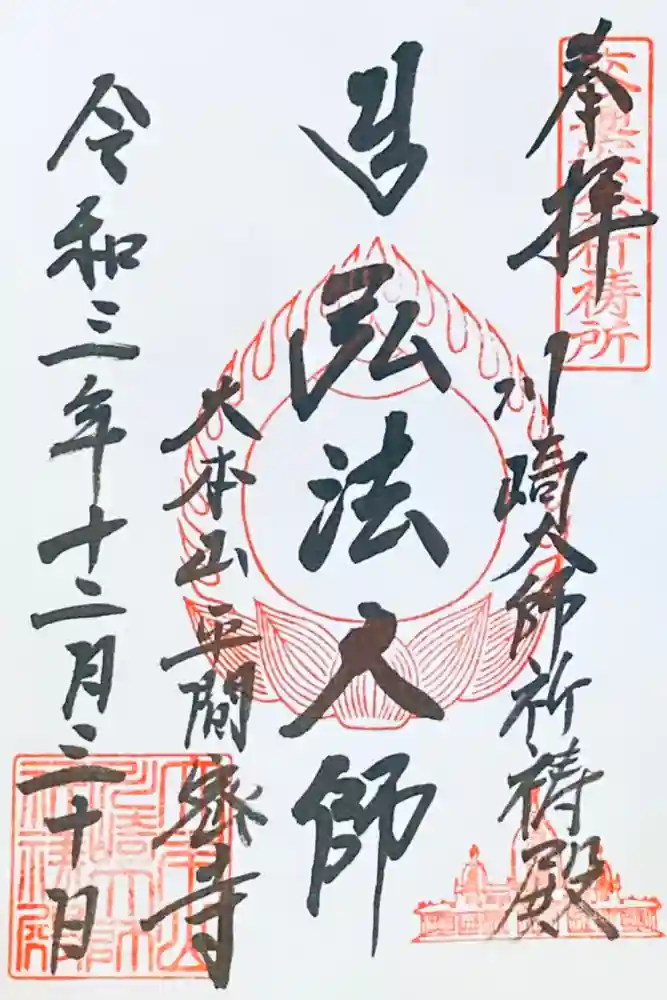 奉拝
川崎大師祈祷殿
弘法大師
大本山平間寺
令和三年十二月三十日
交通安全祈祷所